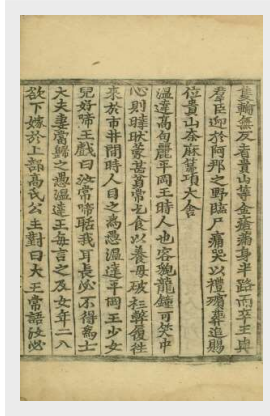 隻輪無反者貴山等金瘡滿身半路而卒王與
羣臣迎於阿那之野臨尸痛哭以禮殯葬追賜
位貴山奈麻箒項大舍
溫達高句麗平岡王時人也容貌龍鐘可笑中
心則睟然家甚貧常乞食以養母破衫弊履徃
來於市井間時人目之爲愚溫達平岡王少女
兒好啼王戱曰汝常啼聒我耳長必不得爲士
大夫妻當歸之愚溫達王每言之及女年二八
欲下嫁於上部高氏公主對曰大王常語汝必